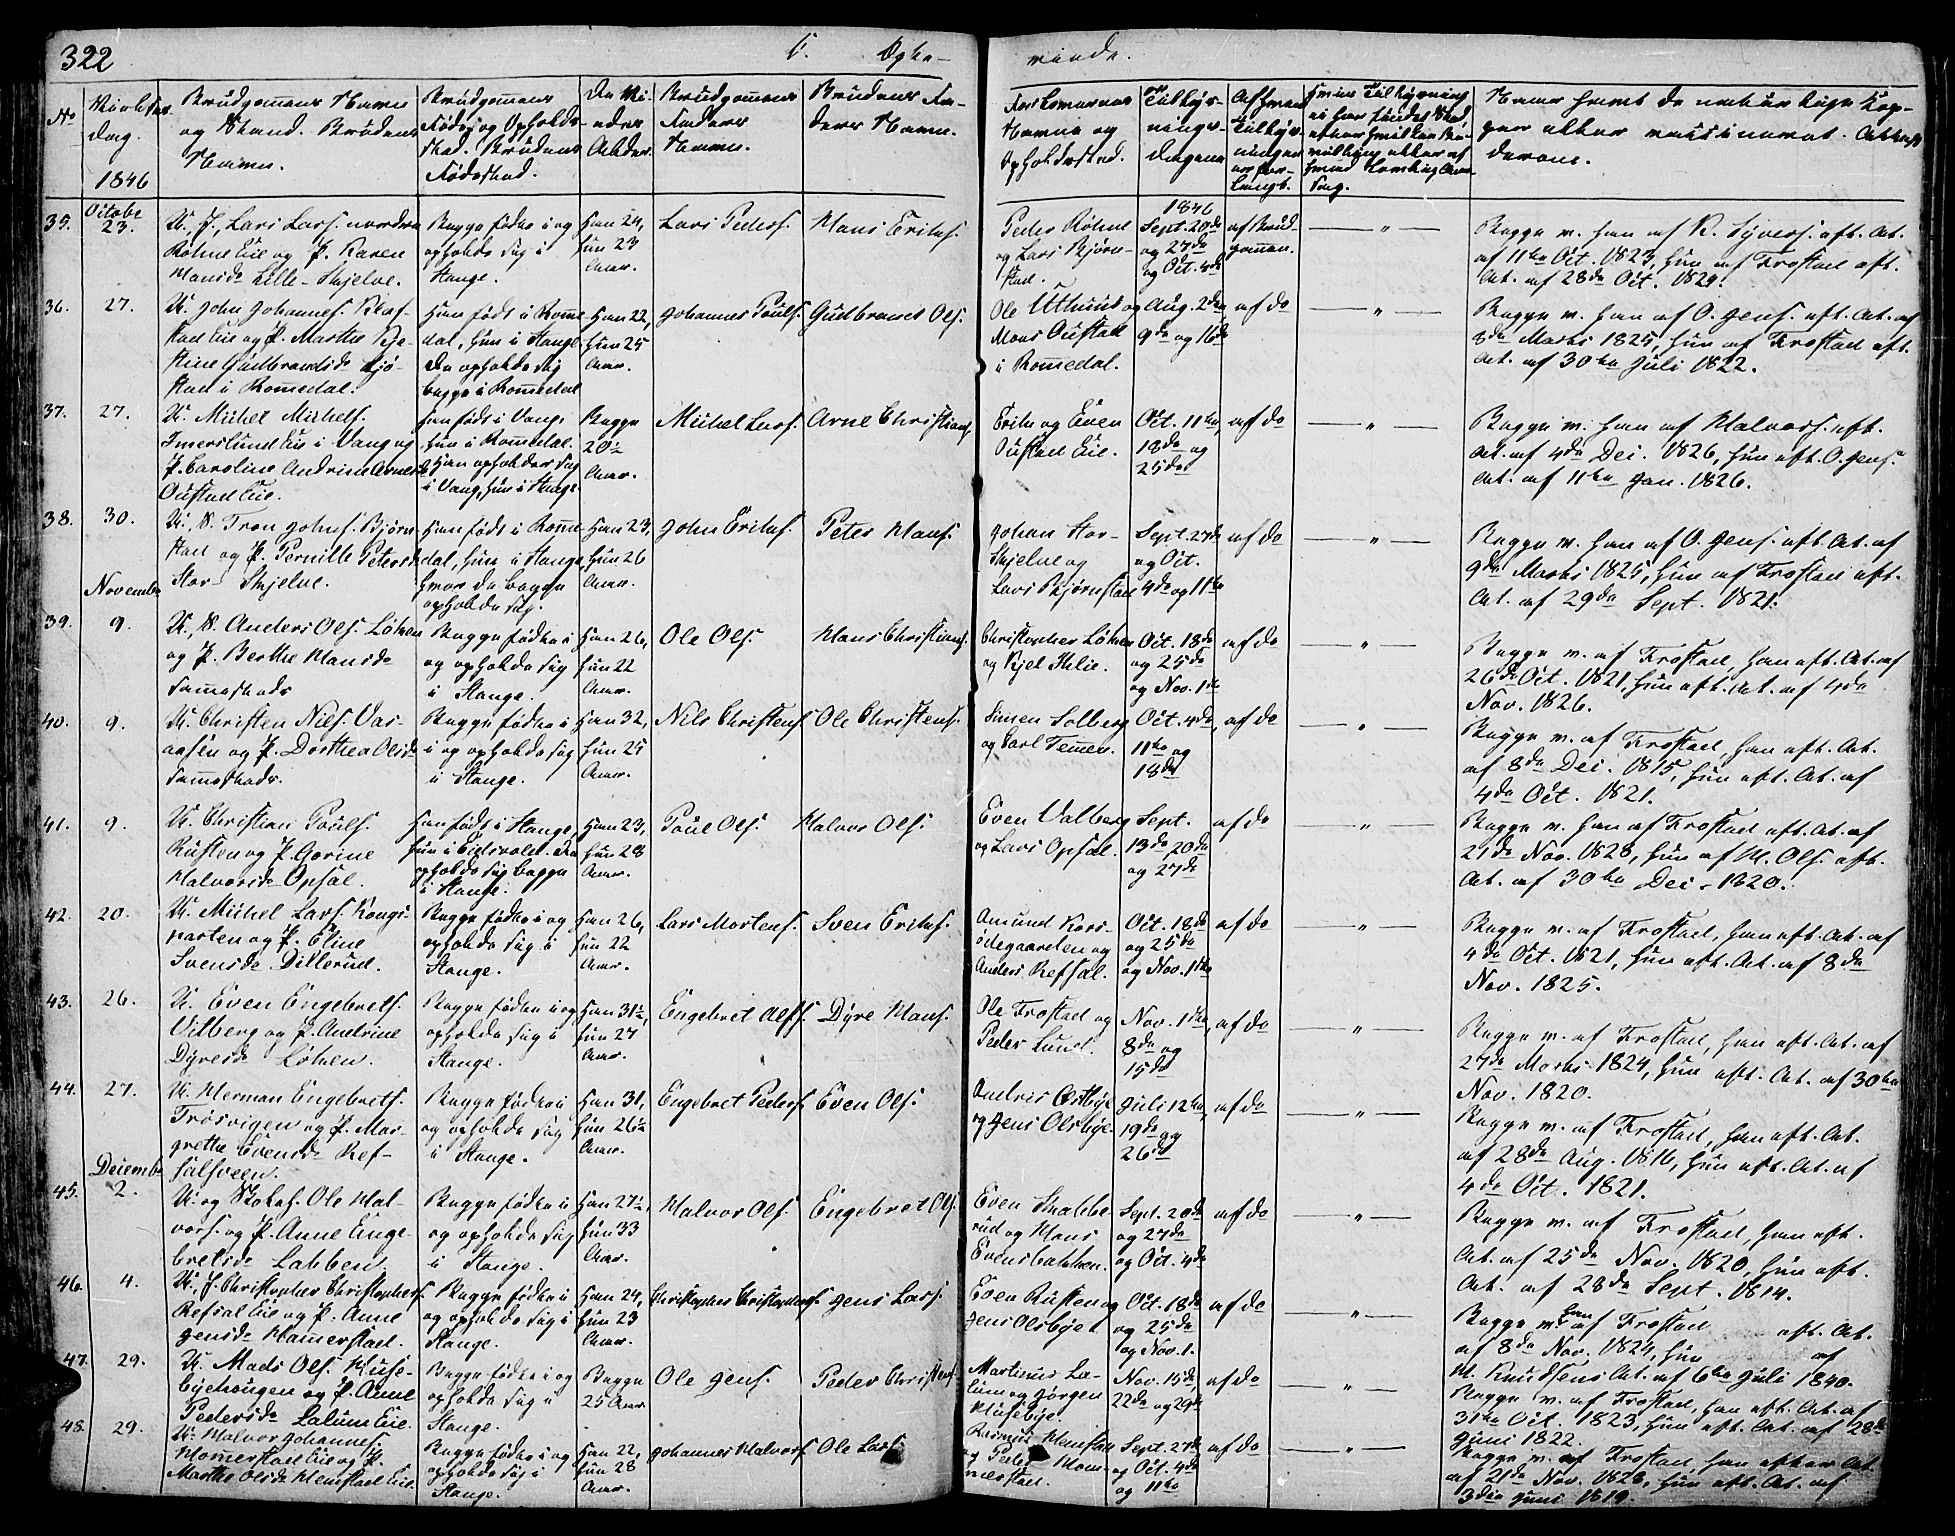 322
C. Ægte-
viede.
No
Vielses-
dag.
1846
Brudgommens Navn
og Stand. Brudens
Navn.
Brudgommens
Fødeog Opholds-
sted. Brudens
Fødested.
De Vi-
edes
Alder.
Brudgommens
Faders
Navn.
Brudens Fa-
ders Navn.
Forlovernes
Navne og
Opholdssted.
Tillys-
nings-
dagene
Af hvem
Tillys-
ningen
er for-
langt.
Naar havt de naturlige Kop-
per eller vaccineret. Attest-
derom.
35.
Octobr
23.
U. J. Lars Lars. nordre
Rohne Eie og P. Karen
Hansd. Lille-Skjelve.
Begge fødte i og
opholde sig i
Stange.
Han 24,
hun 23
Aar.
Lars Peders.
Hans Eriks.
Peder Rohne
og Lars Bjørn-
stad.
1846
Sept. 20de
og 27de
og Oct. 4de
af Brud-
gommen.
— " —
Begge v. han af R. Syvers. eft. At.
af 11te Oct. 1823, hun af Frostad eft.
At. af 28de Oct. 1824.
36.
27.
U. John Johannes. Klæf-
stad Eie og P. Marthe Kje-
stine Gudbrandsd. Gjø-
stad i Romedal.
Han født i Rome-
dal, hun i Stange
De opholde sig
begge i Romedal
Han 22,
hun 25
Aar.
Johannes Pouls.
Gudbrand Ols.
Ole Uthuus og
Mons Oustad
i Romedal.
Aug. 2den
9de og 16de
af do
— " —
Begge v. han af O. Jens. eft. At. af
8de Marts 1825, hun af Frostad eft.
At. af 30te Juli 1822.
37.
27.
U. Michel Michels.
Imerslund Eie i Vang og
P. Caroline Andrine Arnesd.
Oustad Eie.
Han født i Vang,
hun i Romedal.
Han opholder sig
i Vang, hun i Stange
Begge
20½
Aar.
Michel Lars.
Arne Christians.
Erik og Even
Oustad Eie.
Oct. 11te,
18de og
25de
af do
— " —
Begge v. han af Halvors. eft.
At. af 4de Dec. 1826, hun eft. O. Jens.
At. af 11te Jan. 1826.
38.
30.
U. S. Tron Johns. Bjørn-
stad og P. Pernille Petersd.
Stor-Skjelve.
Han født i Rome-
dal, hun i Stange,
hvor de begge
opholde sig.
Han 23,
hun 26
Aar.
John Eriks.
Peter Hans.
Johan Stor-
Skjelve og
Lars Bjørnstad
Sept. 27de
og Oct.
4de og 11te
af do
— " —
Begge v. han af O. Jens. eft. At. af
9de Marts 1825, hun af Frostad eft.
At. af 29de Sept. 1821.
November
39.
9.
U. S. Anders Ols. Løken
og P. Berthe Hansd.
sammesteds
Begge fødte i
og opholde sig
i Stange.
Han 26,
hun 22
Aar.
Ole Ols.
Hans Christians.
Christopher Løken
og Kjel Ihlie.
Oct. 18de
og 25de
og Nov. 1ste
af do
— " —
Begge v. af Frostad, han eft. At. af
26de Oct. 1821, hun eft. At. af 4de
Nov. 1826.
40.
9.
U. Christen Niels. Vas-
aasen og P. Dorthea Olsd.
sammesteds.
Begge fødte
i og opholde sig
i Stange.
Han 32,
hun 25
Aar.
Nils Christens.
Ole Christens.
Simen Solberg
og Carl Temmer.
Oct. 4de,
11te og
18de
af do
— " —
Begge v. af Frostad, han eft. At.
af 8de Dec. 1815, hun eft. At. af
4de Oct. 1821.
41.
9.
U. Christian Pouls.
Rusten og P. Gorine
Halvorsd. Opsal.
Han født i Stange,
hun i Eidsvold. De
opholde sig begge
i Stange.
Han 23,
hun 28
Aar.
Poul Ols.
Halvor Ols.
Even Valberg
og Lars Opsal.
Sept.
13de, 20de
og 27de
af do
— " —
Begge v. han af Frostad eft. At. af
21de Nov. 1823, hun af M. Ols. eft.
At. af 30te Dec. 1820.
42.
20.
U. Michel Lars. Kongs-
parten og P. Eline
Svensd. Dillerud.
Begge fødte i og
opholde sig i
Stange.
Han 26,
hun 22
Aar.
Lars Mortens.
Sven Eriks.
Amund Kors-
ødegaarden og
Anders Refsal.
Oct. 18de
og 25de
og Nov. 1ste
af do
— " —
Begge v. af Frostad, han eft. At. af
4de Oct. 1821, hun eft. At. af 8de
Nov. 1825.
43.
26.
U. Even Engebrets.
Vitberg og P. Andrine
Dyresd. Løken.
Begge fødte i og
opholde sig i
Stange.
Han 31½,
hun 27
Aar.
Engebret Alfs.
Dyre Hans.
Ole Frostad og
Peder Lund.
Nov. 1ste,
8de og
15de
af do
— " —
Begge v. af Frostad, han eft. At. af
27de Marts 1824, hun eft. At. af 30te
Nov. 1820.
44.
27.
U. Herman Engebrets.
Frøsvigen og P. Mar-
grethe Evensd. Ref-
salsveen.
Begge fødte i
og opholde sig
i Stange.
Han 31,
hun 26½
Aar.
Engebret Peders.
Even Ols.
Andris Østbye
og Jens Olsbye.
Juli 12te,
19de og
26de
af do
— " —
Begge v. af Frostad, han eft. At.
af 28de Aug. 1816, hun eft. At. af
4de Oct. 1821.
December
45.
2.
U. og Skols. Ole Hal-
vors. og P. Anne Enge-
bretsd. Labben.
Begge fødte i
og opholde sig
i Stange.
Han 27½,
hun 33
Aar.
Halvor Ols.
Engebret Ols.
Even Skabbe-
rud og Hans
Evensbakken.
Sept. 20de
og 27de
og Oct. 4de
af do
— " —
Begge v. af Frostad, han eft.
At. af 25de Nov. 1820, hun eft.
At. af 28de Sept. 1814.
46.
4.
U. J. Christopher Christophers.
Refsal Eie og P. Anne
Jensd. Hamerstad.
Begge fødte i
og opholde sig i
Stange.
Han 24,
hun 23
Aar.
Christopher Christophers.
Jens Lars.
Even Rusten og
Jens Olsbye.
Oct. 18de
og 25de
og Nov. 1.
af do
— " —
Begge v. han af Frostad eft. At.
af 8de Nov. 1824, hun af
M. Knudsens At. af 6te Juli 1840.
47.
29.
U. Mads Ols. Huse-
byehougen og P. Anne
Pedersd. Lalum Eie.
Begge fødte i og
opholde sig i
Stange.
Begge
25 Aar.
Ole Jens.
Peder Christens.
Martinus La-
lum og Jørgen
Husebye.
Nov. 15de
22de og 29de
af do
— " —
Begge v. af Frostad, han eft. At. af
31te Oct. 1823, hun eft. At. af 28de
Juni 1822.
48.
29.
U. Halvor Johannes.
Homerstad Eie og P.
Marthe Olsd. Menstad Eie.
Begge fødte i og
opholde sig i
Stange.
Han 22,
hun 28
Aar.
Johannes Halvors.
Ole Lars.
Rasmus Menstad
og Peder Hom-
merstad.
Sept. 27de
og Oct. 4de
og 11te
af do
— " —
Begge v. af Frostad han efter At.
af 21de Nov. 1823, hun eft. At. af
3die Juni 1819.